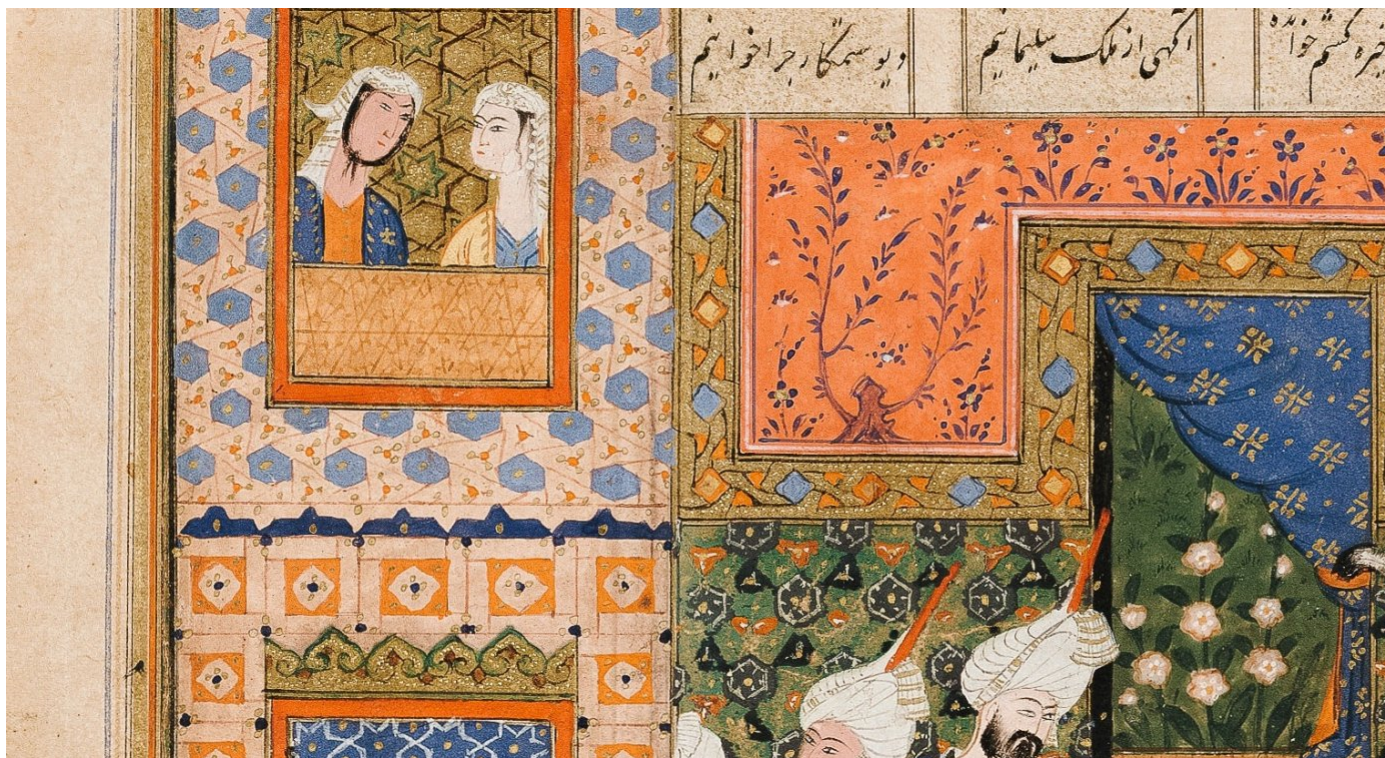 خیره کشم خوانده
آگهی از ملک سلیمانیم
دیو ستمکار چرا خوانیم